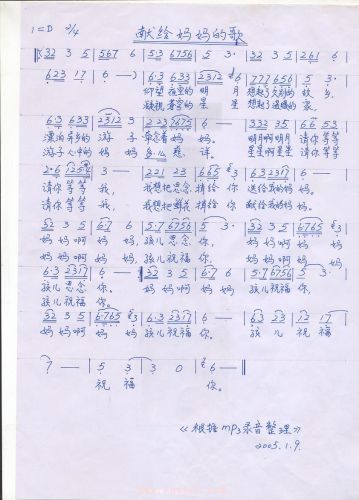 献给妈妈的歌
1=D 2/4
32 3 5 | 567 6 | 5·3 6756 | 5 3· | 32 3 5 | 261 6 |
623 17 | 6 — ) | 6·3 633 | 2312 6 | 777 656 | 5 3· |
仰望夜里的 明 月 想起了久别的 故 乡
凝视苍空的 星 星 想起了温暖的 家
6·3 633 | 2312 3 | 223 7675 | 6 — | 332 35 | 66 53 |
漂泊异乡的 游 子 思念着 妈 妈。 明月啊明月 请你等等
游子心中的 妈 妈 多么慈 祥。 星星啊星星 请你等等
2·6 1254 | 3 — | 221 23 | 665 3 | 63 2317 | 6 — |
请你等等 我, 我想把思念 捎给 你 送给我的妈 妈。
请你等等 我, 我想把鲜花 捎给 你 献给我的妈 妈。
32 3 5 | 6·7 6 | 5·7 6756 | 5 3· | 32 3 5 | 6765 3 |
妈妈啊 妈 妈, 孩儿 思念 你, 妈妈啊 妈 妈
妈妈啊 妈 妈, 孩儿祝福 你, 妈妈啊 妈 妈
6·3 2317 | 6 — | 32 3 5 | 6·7 6 | 5·7 6756 | 5 3· |
孩儿 思念 你。 妈妈啊 妈 妈 孩儿祝福 你,
孩儿祝福 你。
32 3 5 | 6·765 3 | 6·3 2317 | 6 — | 63 23 | 12 17 |
妈妈啊 妈 妈 孩儿祝福 你。 孩 儿 祝福
7 — | 5 3 | 3 0 | 6 — ‖
祝 福 你。
《根据mp3录音整理》
2005.1.9.